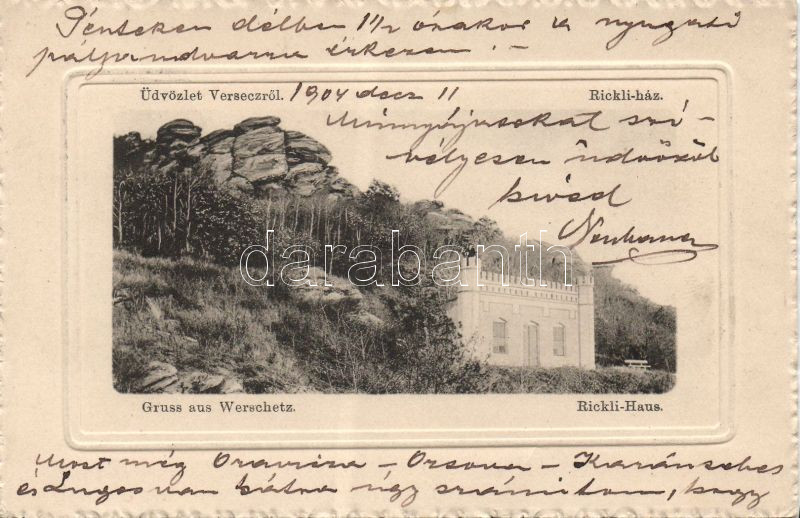 Pénteken délben 1/2 órakor a nyugati
pályaudvarra érkezem. -
Üdvözlet Verseczről. 1904 decz 11
Rickli-ház.
Mindnyájusokat szí-
vélyesen üdvözöl
híved
darabanth.com
Gruss aus Werschetz.
Rickli-Haus.
Most még Oravicza - Orsova - Karánsebes
és Lugos van hátra úgy számítom, hogy